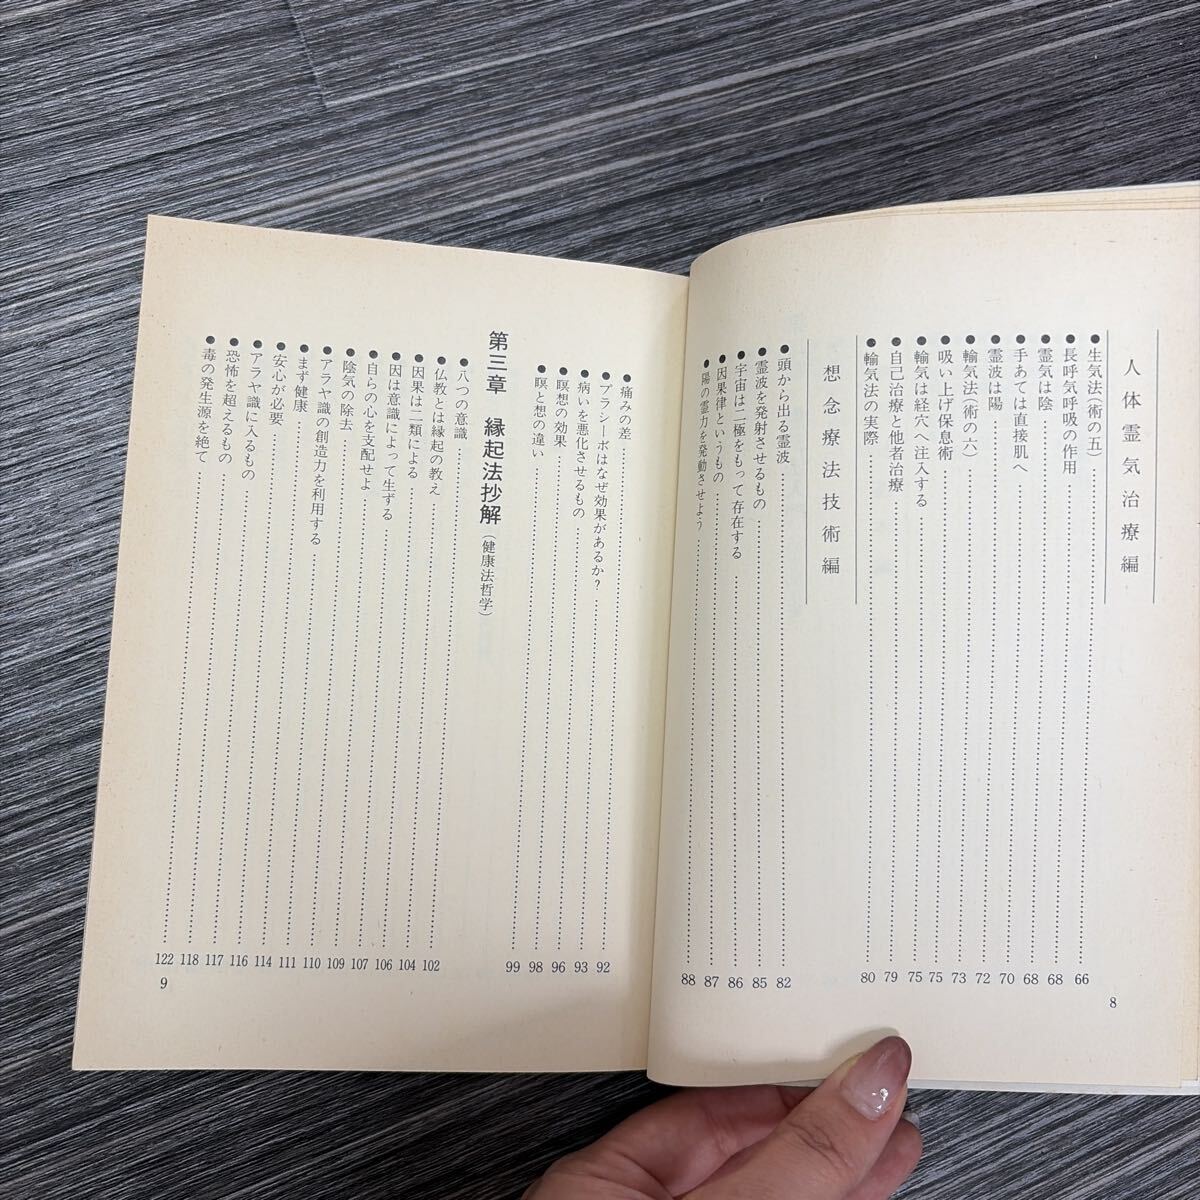 人体霊気治療編
●生気法(術の五)……66
●長呼気呼吸の作用……68
●霊気は陰……68
●手あては直接肌へ……70
●霊波は陽……72
●輸気法(術の六)……73
●吸い上げ保息術……75
●輸気は経穴へ注入する……75
●自己治療と他者治療……79
●輸気法の実際……80
想念療法技術編
●頭から出る霊波……82
●霊波を発射させるもの……85
●宇宙は二極をもって存在する……86
●因果律というもの……87
●陽の霊力を発動させよう……88
8
●痛みの差……92
●プラシーボはなぜ効果があるか?……93
●病いを悪化させるもの……96
●瞑想の効果……98
●瞑と想の違い……99
第三章 縁起法抄解(健康法哲学)
●八つの意識……102
●仏教とは縁起の教え……104
●因果は二類による……106
●因は意識によって生ずる……107
●自らの心を支配せよ……109
●陰気の除去……110
●アラヤ識の創造力を利用する……111
●まず健康……114
●安心が必要……116
●アラヤ識に入るもの……117
●恐怖を超えるもの……118
●毒の発生源を絶て……122
9